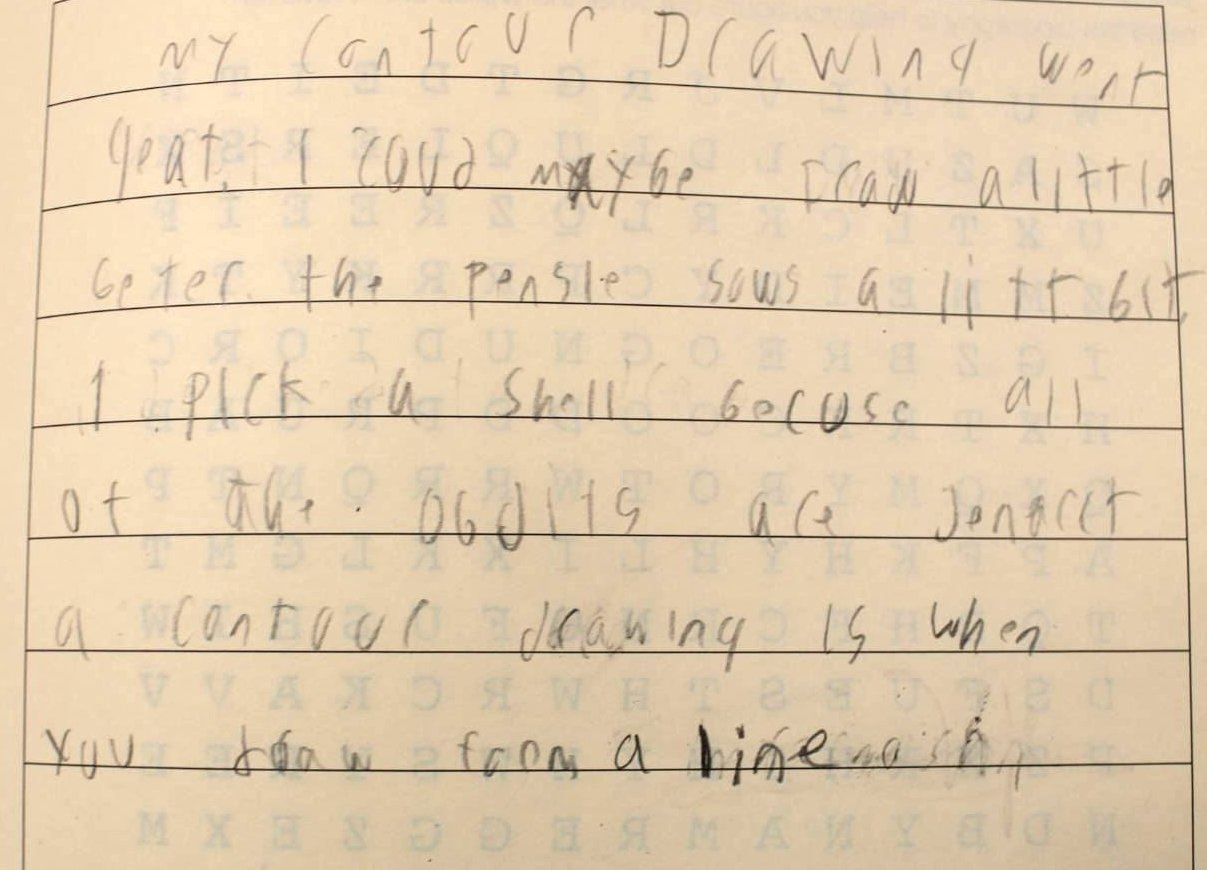 my Contour Drawing went
geat. I coud maybe Draw a little
beter. the pensle sows a litt bit.
I pick a shell becuse all
of the obdjits are
a contour drawing is when
you draw a line